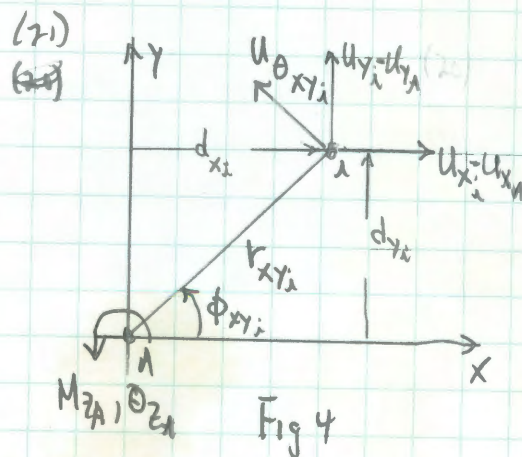 (21)
Y
U_θxyi
U_yi - U_yA
d_xi
i
U_xi - U_xA
d_yi
r_xyi
φ_xyi
A
X
M_zA, θ_zA
Fig 4